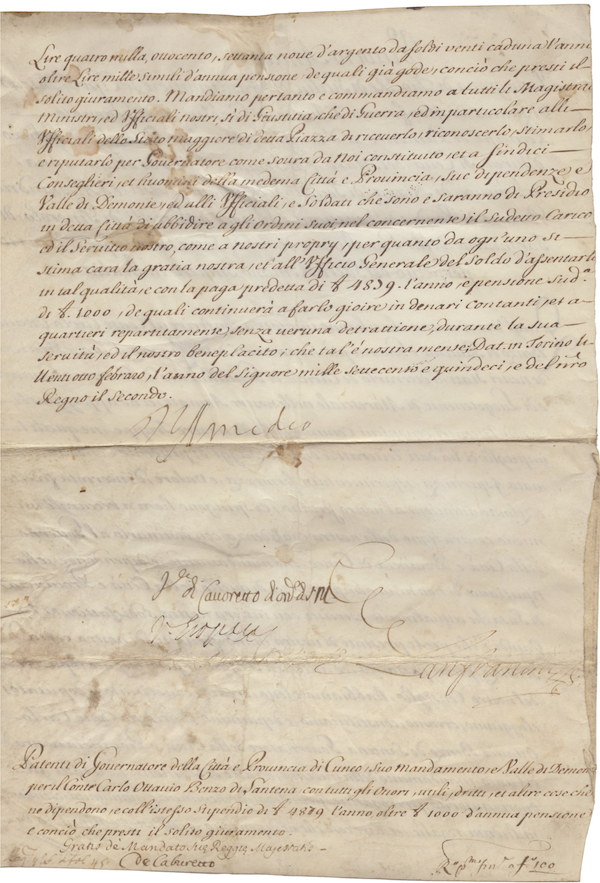 Lire quatro milla, ottocento, settanta nove d'argento da soldi venti caduna l'anno
oltre Lire mille simili d'annua pensione de quali già gode, conciò che presti il
solito giuramento. Mandiamo pertanto e commandiamo a tutti li Magistrati
Ministri, ed Ufficiali nostri, sì di Giustitia, che di Guerra, ed in particolare alli
Ufficiali dello Stato maggiore di detta Piazza di riceverlo, riconoscerlo, stimarlo,
e riputarlo per Governatore come sovra da Noi constituto, et a Sindici
Conseglieri, et huomini della medema Città e Provincia, sue dipendenze e
Valle di Demonte, ed alli Ufficiali, e Soldati che sono e saranno di Presidio
in detta Città di ubbidire a gli ordini suoi nel concernente il sudetto Carico
ed il servitio nostro, come a nostri proprÿ, per quanto da ogn'uno si
stima cara la gratia nostra, et all'Ufficio Generale del Soldo d'assentarlo
in tal qualità, e con la paga predetta di £ 4879. l'anno, e pensione sud.ª
di £ 1000, de quali continuerà a farlo gioire in denari contanti, et a
quartieri repartitamente, senza veruna detrattione, durante la sua
servitù, ed il nostro beneplacito; che tal'è nostra mente; Dat. in Torino li
Venti otto febraro, l'anno del Signore mille settecento e quindeci, e del nro
Regno il secondo.
V Amedeo
di Cavoretto
Lanfranchi
Patenti di Governatore della Città e Provincia di Cuneo, suo mandamento, e Valle di Demonte
per il Conte Carlo Ottavio Benzo di Santena, con tutti gli Onori, utili, dritti, et altre cose che
ne dipendono, e coll'istesso stipendio di £ 4879 l'anno, oltre £ 1000 d'annua pensione
e conciò che presti il solito giuramento.
Gratis de Mandato suæ Regiæ Majestatis
de Caburetto
100